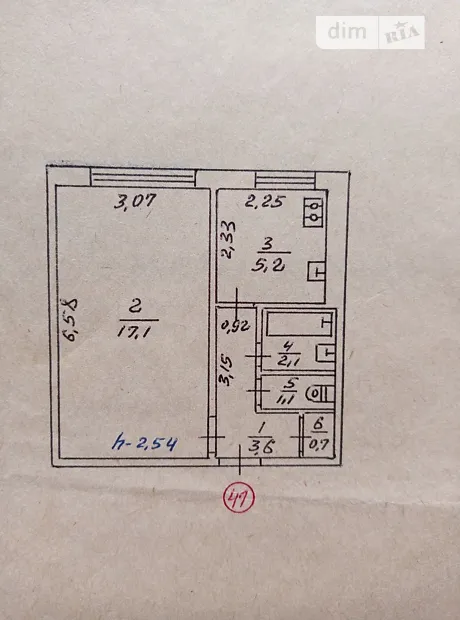 dim RIA
3,07
2,25
2,33
3
5,2
6,58
2
17,1
0,92
3,15
4
2,1
5
1,1
1
3,6
6
0,7
h-2,54
47